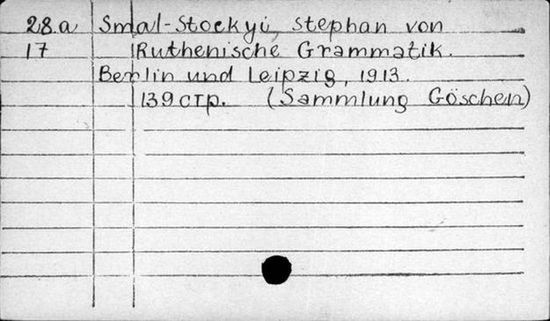 28.a Smal-Stockyi, Stephan von
17 Ruthenische Grammatik.
Berlin und Leipzig, 1913.
139 стр. (Sammlung Göschen)